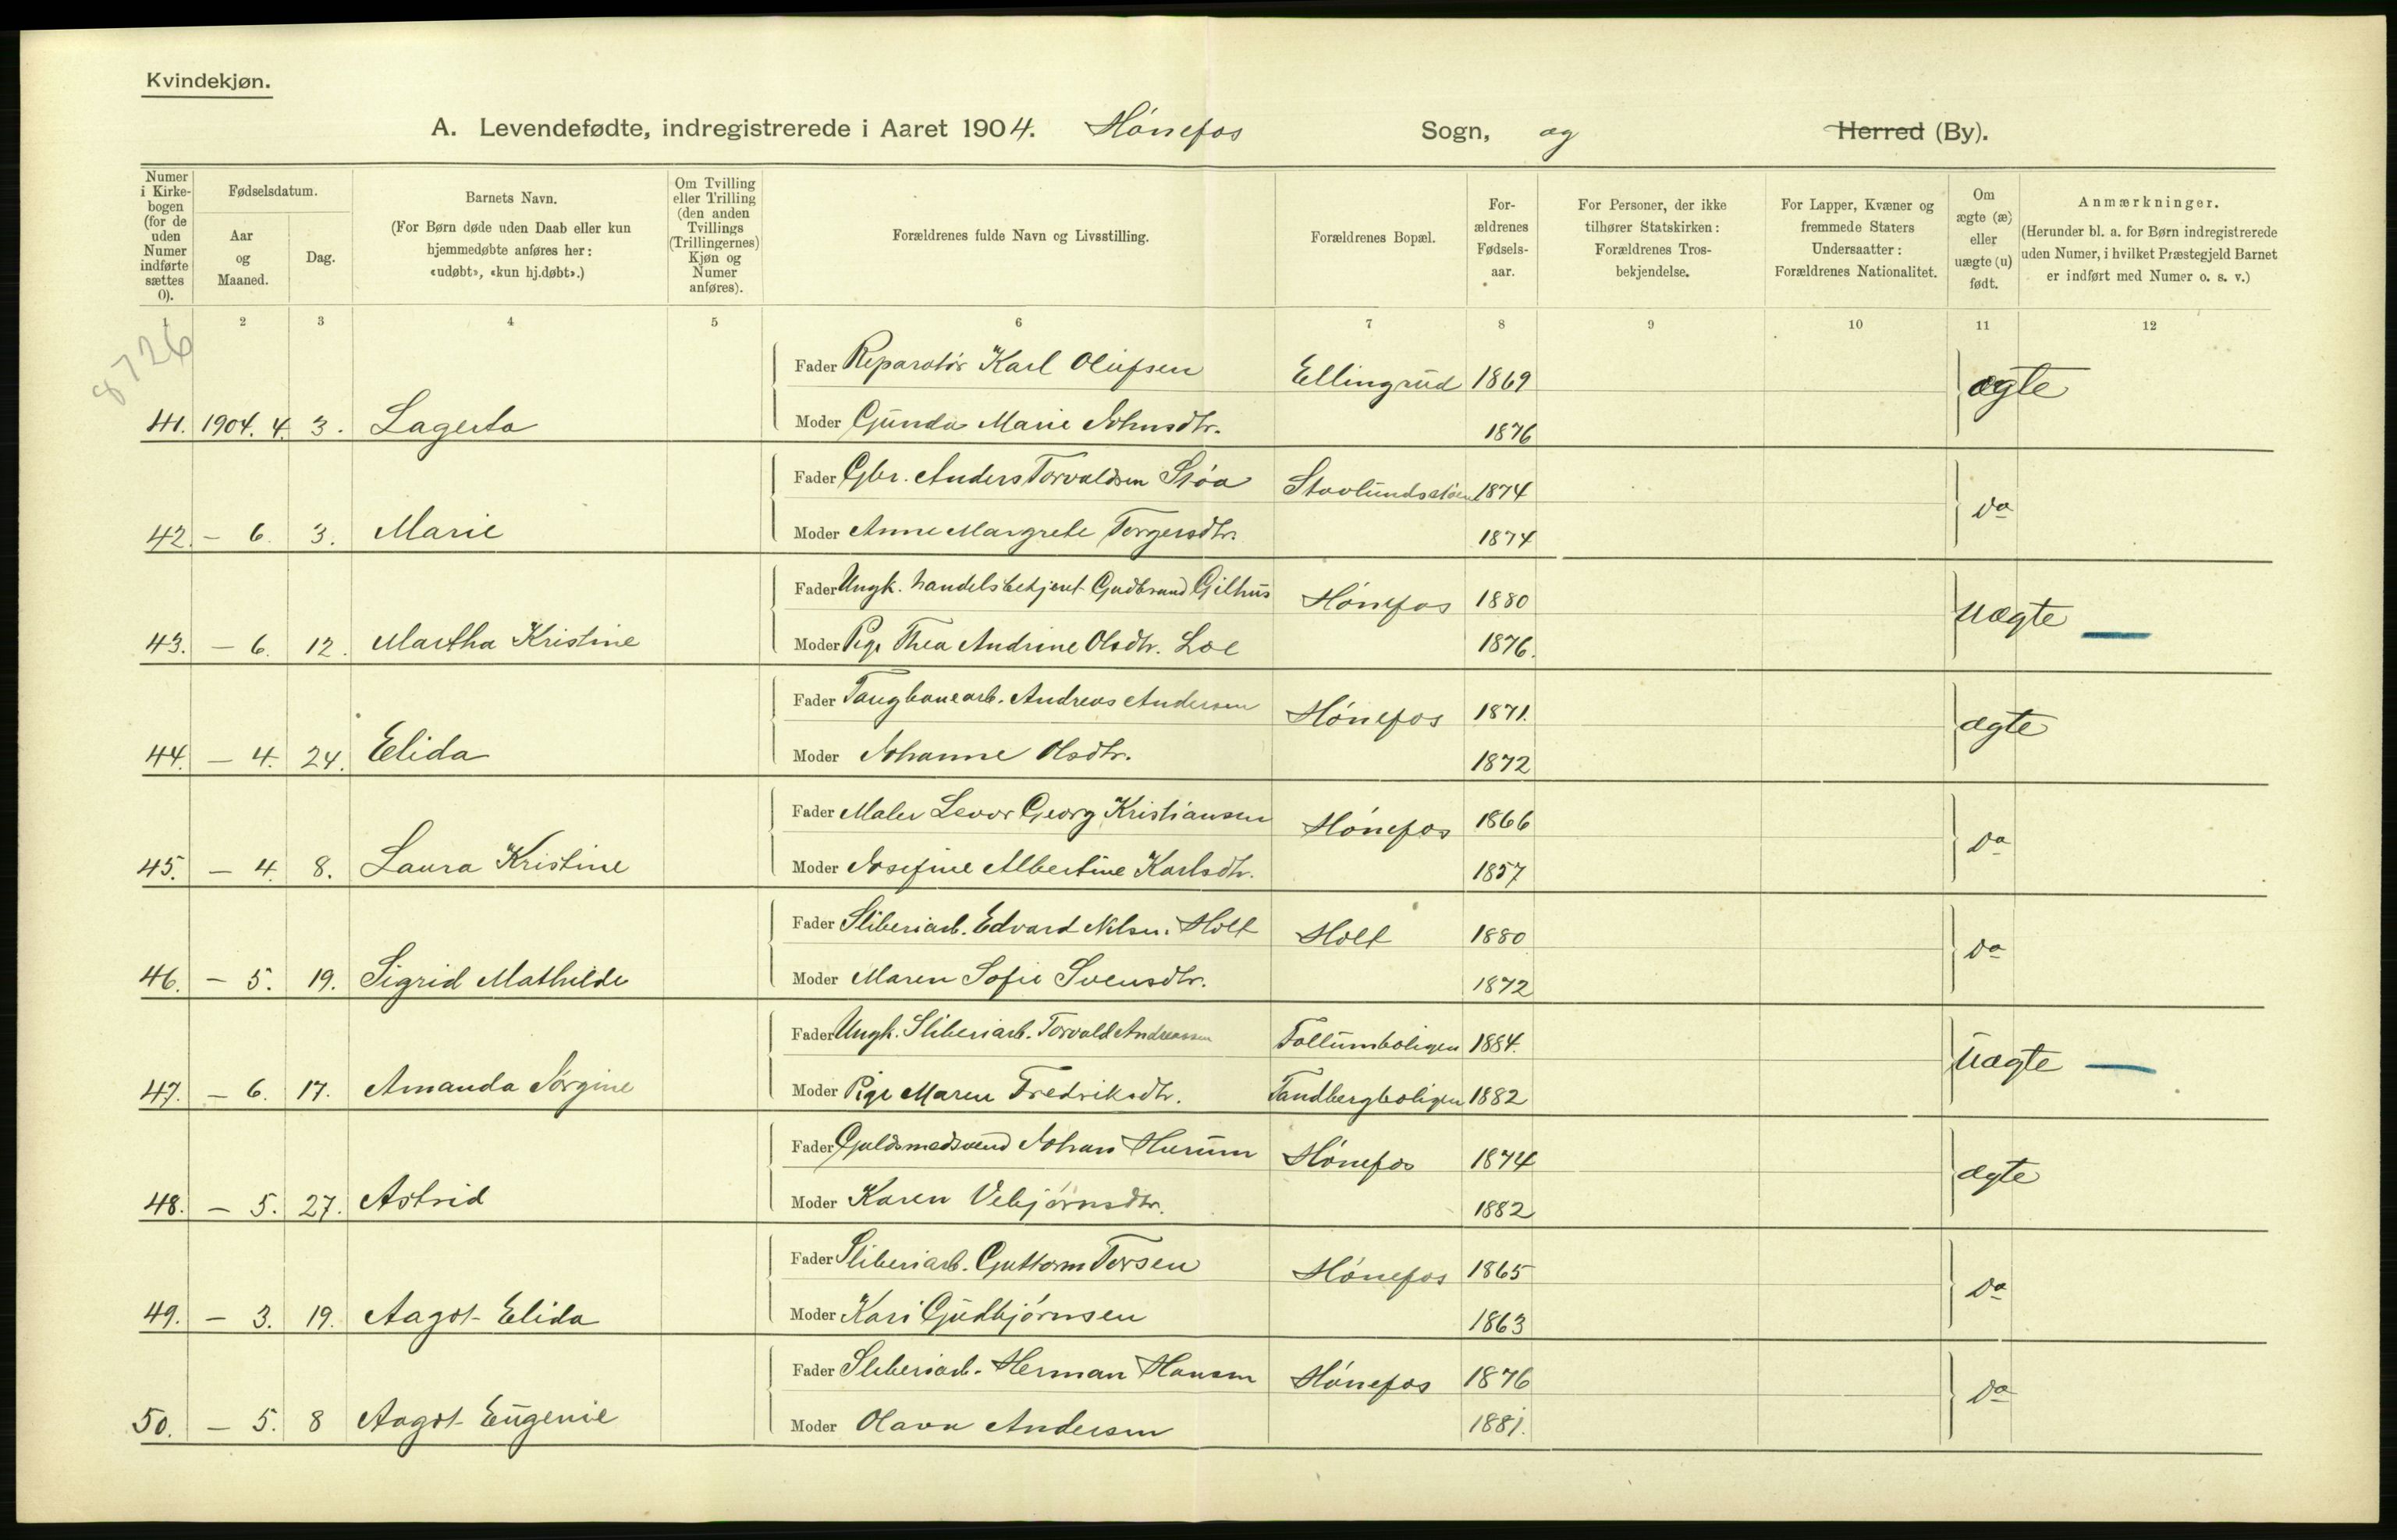 Kvindekjøn.
A. Levendefødte, indregistrerede i Aaret 1904. Hónefos Sogn, og Herred (By).
Numer i Kirkebogen (for de uden Numer indførte sættes 0).
Fødselsdatum.
Aar og Maaned.
Dag.
Barnets Navn.
(For Børn døde uden Daab eller kun hjemmedøbte anføres her: «udøbt», «kun hj.døbt».)
Om Tvilling eller Trilling (den anden Tvillings (Trillingernes) Kjøn og Numer anføres).
Forældrenes fulde Navn og Livsstilling.
Forældrenes Bopæl.
Forældrenes Fødselsaar.
For Personer, der ikke tilhører Statskirken: Forældrenes Trosbekjendelse.
For Lapper, Kvæner og fremmede Staters Undersaatter: Forældrenes Nationalitet.
Om ægte (æ) eller uægte (u) født.
Anmærkninger.
(Herunder bl. a. for Børn indregistrerede uden Numer, i hvilket Præstegjeld Barnet er indført med Numer o. s. v.)
1 2 3 4 5 6 7 8 9 10 11 12
8726
Fader Reparatór Karl Olufsen Ellingrud 1869 ægte
41. 1904. 4. 3. Lagerta Moder Gunda Marie Johnsdtr. 1876
Fader Gbr. Anders Torvaldsen Stóa 1874 do
42. – 6. 3. Marie Moder Anne Margrete Torgersdtr. 1874
Fader Ungk. handelsbetjent Gudbrand Gilhus Hónefos 1880 uægte —
43. – 6. 12. Martha Kristine Moder Pige Thea Andrine Olsdtr. Loe 1876.
Fader Taugbanearb. Andreas Andersen Hónefos 1871. ægte
44. – 4. 24. Elida Moder Johanne Olsdtr. 1872
Fader Maler Levor Georg Kristiansen Hónefos 1866 do
45. – 4. 8. Laura Kristine Moder Josefine Albertine Karlsdtr. 1857
Fader Sliberiarb. Edvard Nilsen Holt Holt 1880 do
46. – 5. 19. Sigrid Mathilde Moder Maren Sofie Svensdtr. 1872
Fader Ungk. Sliberiarb. Torvald Andreassen Follumboligen 1884. uægte —
47. – 6. 17. Amanda Jórgine Moder Pige Maren Fredriksdtr. Tandbergboligen 1882
Fader Guldsmedsvend Johan Hurum Hónefos 1874 ægte
48. – 5. 27. Astrid Moder Karen Vebjórnsdtr. 1882
Fader Sliberiarb. Guttorm Torsen Hónefos 1865 do
49. – 3. 19. Aagot Elida Moder Kari Gudbjórnsen 1863
Fader Sliberiarb. Herman Hansen Hónefos 1876 do
50. – 5. 8 Aagot Eugenie Moder Olava Andersen 1881.